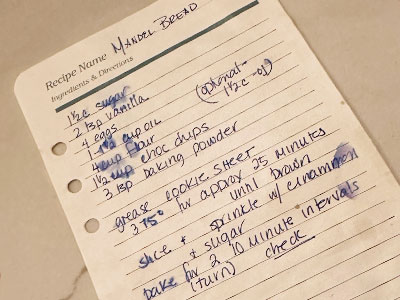 Recipe Name MANDEL BREAD
Ingredients & Directions
1½ c sugar
2 tsp vanilla
4 eggs
1 - 1½ cup oil (optional - 1½ c - oj)
4 cup flour
1½ cup choc chips
3 tsp baking powder
grease cookie sheet
375° for approx 25 minutes
until brown
slice + sprinkle w/ cinammon
+ sugar
bake for 2 10 minute intervals
(turn) check